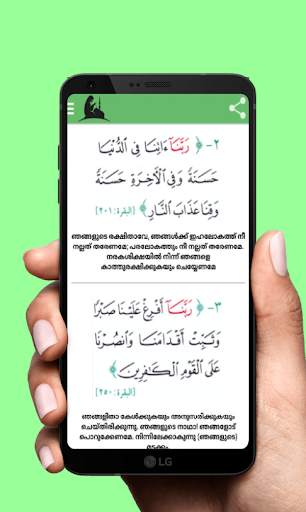 ٢- ﴿ رَبَّنَآ ءَاتِنَا فِي ٱلدُّنْيَا
حَسَنَةً وَفِي ٱلْأَخِرَةِ حَسَنَةً
وَقِنَا عَذَابَ ٱلنَّارِ ﴾ [البقرة: ٢٠١]
ഞങ്ങളുടെ രക്ഷിതാവേ, ഞങ്ങള്‍ക്ക് ഇഹലോകത്ത് നീ
നല്ലത് തരേണമേ; പരലോകത്തും നീ നല്ലത് തരേണമേ.
നരകശിക്ഷയില്‍ നിന്ന് ഞങ്ങളെ
കാത്തുരക്ഷിക്കുകയും ചെയ്യേണമേ
٣- ﴿ رَبَّنَآ أَفْرِغْ عَلَيْنَا صَبْرًا
وَثَبِّتْ أَقْدَامَنَا وَٱنصُرْنَا
عَلَى ٱلْقَوْمِ ٱلْكَٰفِرِينَ ﴾
[البقرة: ٢٥٠]
ഞങ്ങളിതാ കേള്‍ക്കുകയും അനുസരിക്കുകയും
ചെയ്തിരിക്കുന്നു. ഞങ്ങളുടെ നാഥാ! ഞങ്ങളോട്
പൊറുക്കേണമേ. നിന്നിലേക്കാകുന്നു (ഞങ്ങളുടെ)
മടക്കം
LG